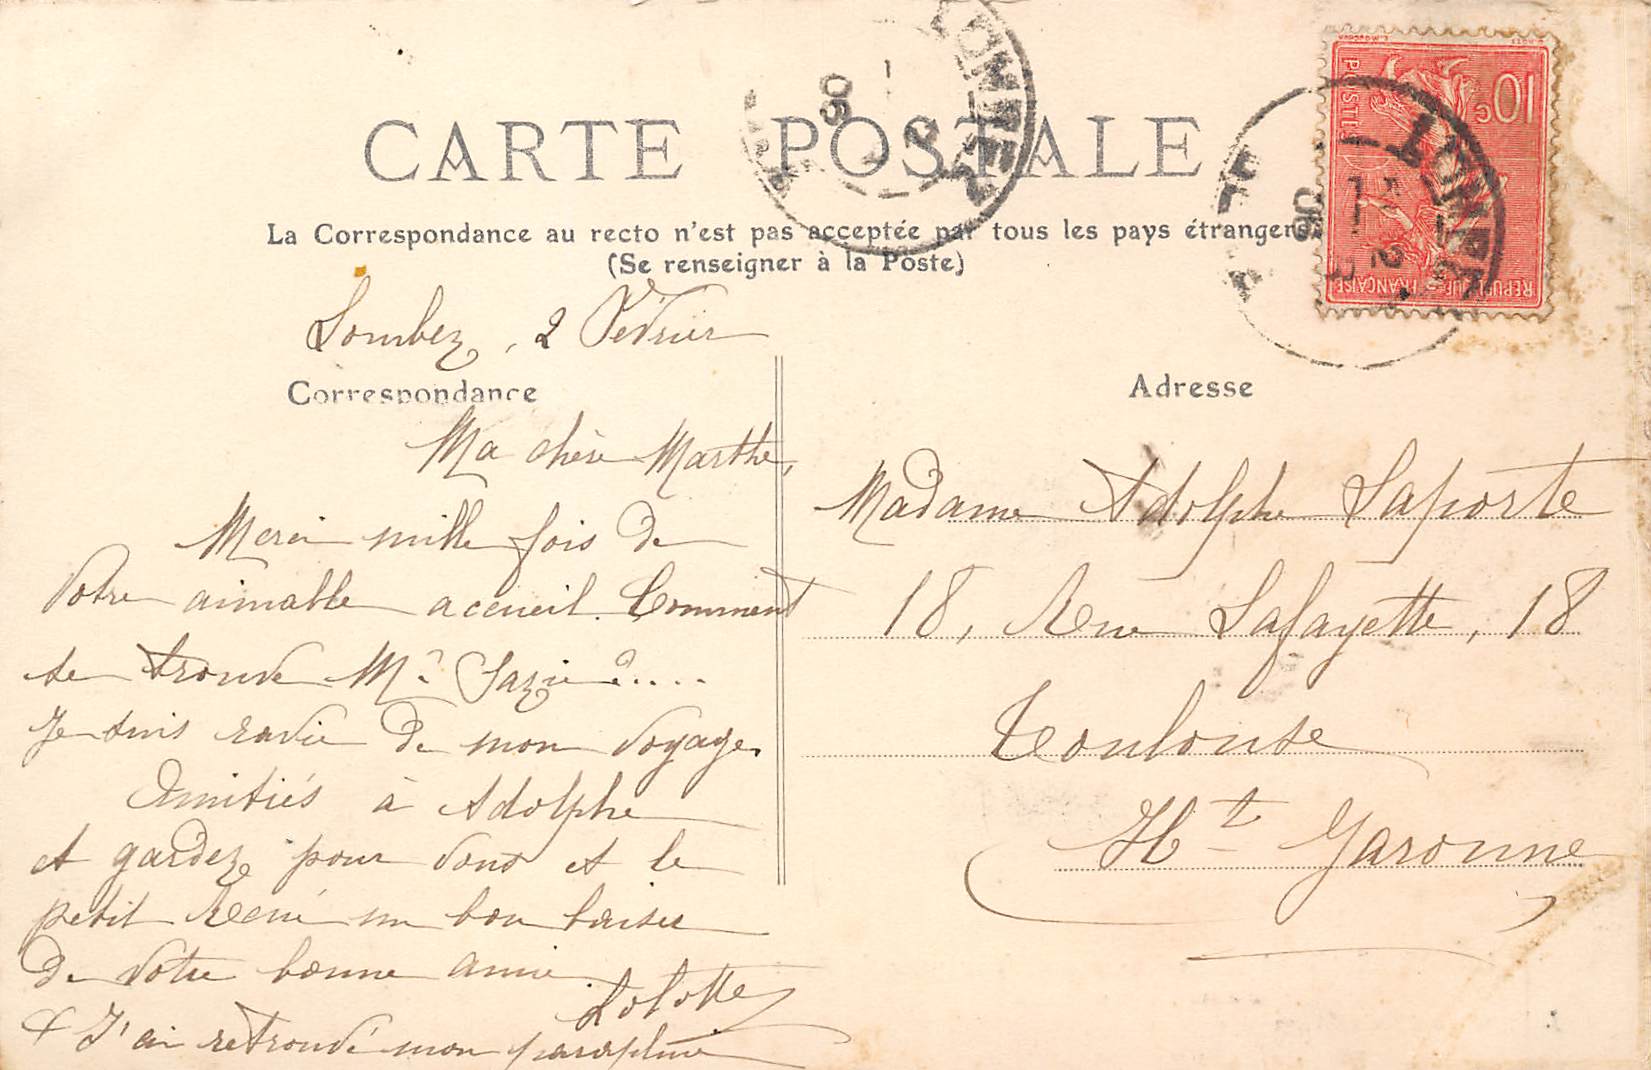 CARTE POSTALE
La Correspondance au recto n'est pas acceptée par tous les pays étrangers
(Se renseigner à la Poste)
LOMBEZ
06
10c
POSTES
REPUBLIQUE FRANÇAISE
LOMBEZ
2
06
Lombez, 2 Février
Correspondance
Ma chère Marthe,
Merci mille fois de
votre aimable accueil. Comment
se trouve Mr Sazie ?....
Je suis ravie de mon voyage.
Amitiés à Adolphe
et gardez pour vous et le
petit René un bon baiser
de votre bonne amie
Lolotte
J'ai retrouvé mon parapluie
Adresse
Madame Adolphe Laporte
18, Rue Lafayette, 18
Toulouse
Hte Garonne